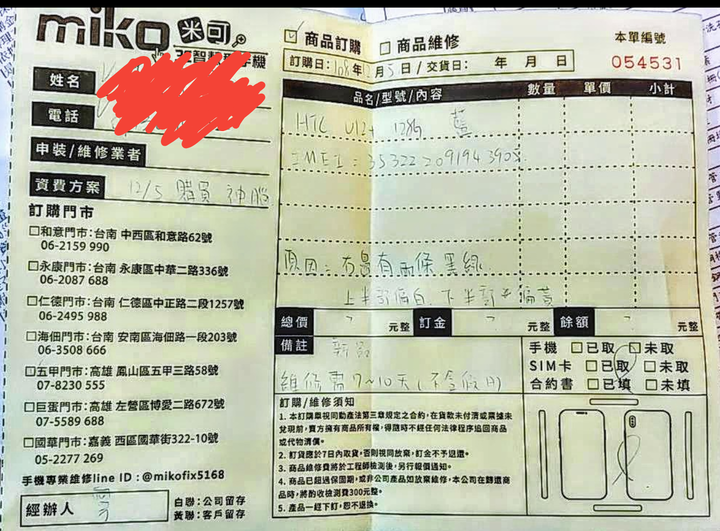 miko 米可
智慧 手機
商品訂購 商品維修
本單編號
訂購日：108年12月5日/交貨日： 年 月 日
054531
姓名
電話
申裝/維修業者
資費方案 12/5 購買 神腦
品名/型號/內容 數量 單價 小計
HTC U12+ 128G 藍
IMEI：
原因： 有兩條黑線
上半部偏白 下半部 偏黃
訂購門市
和意門市：台南 中西區和意路62號
06-2159 990
永康門市：台南 永康區中華二路336號
06-2087 688
仁德門市：台南 仁德區中正路二段1257號
06-2495 988
海佃門市：台南 安南區海佃路一段203號
06-3508 666
五甲門市：高雄 鳳山區五甲三路58號
07-8230 555
巨蛋門市：高雄 左營區博愛二路672號
07-5589 688
國華門市：嘉義 西區國華街322-10號
05-2277 269
手機專業維修line ID：@mikofix5168
經辦人
白聯：公司留存
黃聯：客戶留存
總價 元整 訂金 元整 餘額 元整
備註 新品
維修需7~10天(不含假日)
手機 已取 未取
SIM卡 已取 未取
合約書 已填 未填
訂購/維修須知
1. 本訂購單視同動產法第三章規定之合約，在貨款未付清或票據未
兌現前，賣方擁有商品所有權，得隨時不經任何法律程序追回商品
或代物清償。
2. 訂貨應於7日內取貨，否則視同放棄，訂金不予退還。
3. 商品維修費將於工程師檢測後，另行報價通知。
4. 商品已超過保固期，或非公司產品如放棄維修，本公司在歸還商
品時，將酌收檢測費300元整。
5. 產品一經下訂，恕不退換。